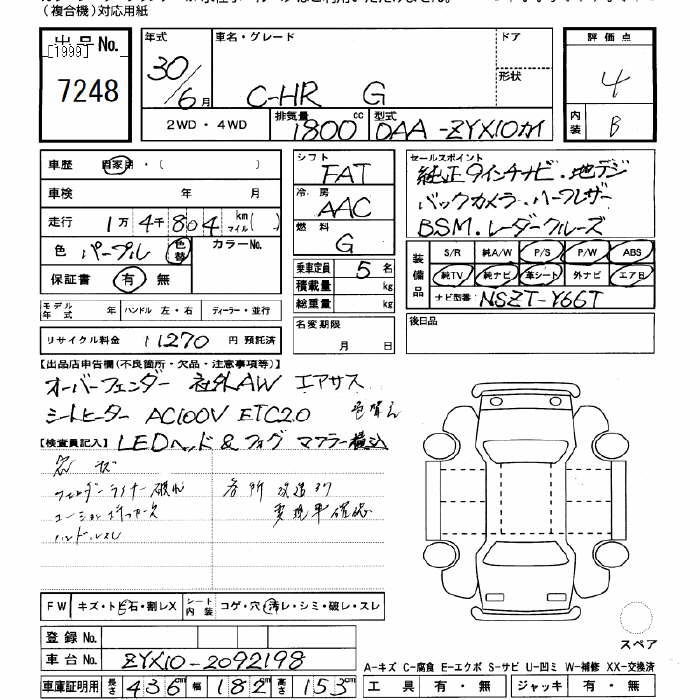 (複合機)対応用紙
出品No.
[1999]
7248
年式
30/6月
車名・グレード
C-HR G
ドア
形状
2WD・4WD
排気量 1800 cc
型式 DAA-ZYX10カイ
評価点
4
内装 B
車歴 自家用・( )
車検 年 月
走行 1万4千804 km マイル( )
色 パープル 色替 カラーNo.
保証書 有 無
モデル年式 年 ハンドル 左・右 ディーラー・並行
リサイクル料金 11270 円 預託済
シフト
FAT
冷房
AAC
燃料
G
乗車定員 5名
積載量 kg
総重量 kg
名変期限
月 日
セールスポイント
純正9インチナビ・地デジ
バックカメラ・ハーフレザー
BSM・レーダークルーズ
装備品
S/R 純A/W P/S P/W ABS
純TV 純ナビ 革シート 外ナビ エアB
ナビ型番 NSZT-Y66T
後日品
【出品店申告欄(不良箇所・欠品・注意事項等)】
オーバーフェンダー 社外AW エアサス
シートヒーター AC100V ETC2.0 色替え
【検査員記入】 LEDヘッド&フォグ マフラー積込
フェンダーライナー破れ 各所改造有
変現車確認
ハンドルスレ
FW キズ・トビ石・割レX シート内装 コゲ・穴・汚レ・シミ・破レ・スレ
登録No.
車台No. ZYX10-2092198
車庫証明用 長さ 436cm 幅 182cm 高さ 153cm
スペア
A-キズ C-腐食 E-エクボ S-サビ U-凹ミ W-補修 XX-交換済
工具 有・無 ジャッキ 有・無